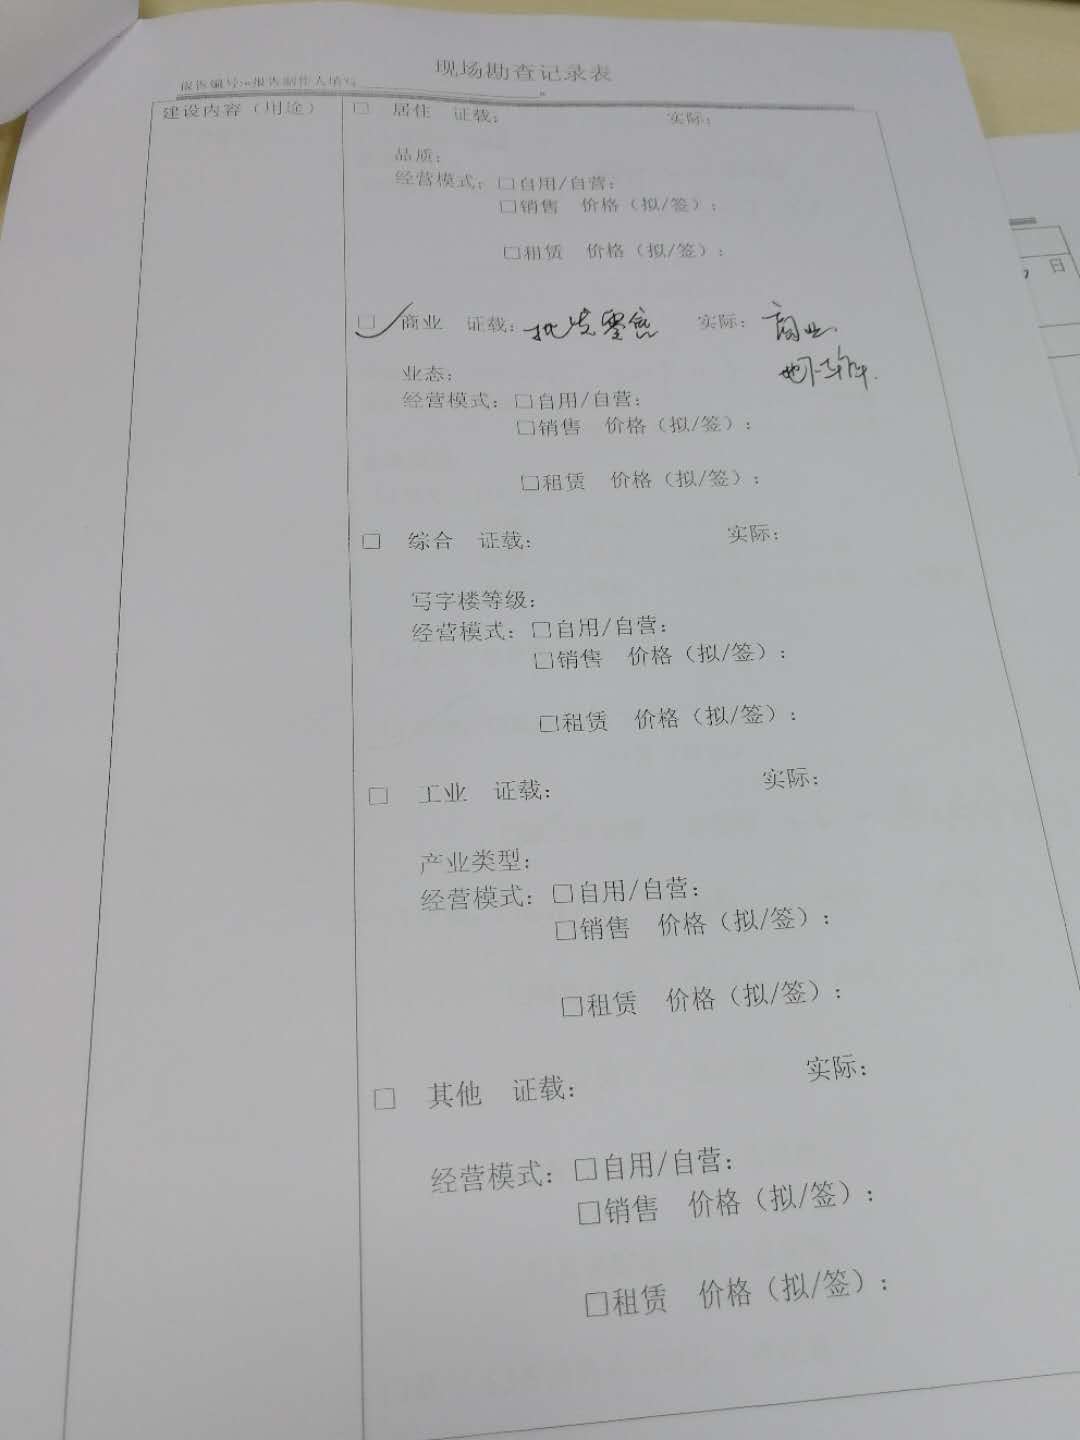 现场勘查记录表
报告编号:(报告制作人填写
建设内容（用途） □ 居住 证载： 实际：
品质：
经营模式：□自用/自营：
□销售 价格（拟/签）：
□租赁 价格（拟/签）：
□ 商业 证载：批发零售 实际：商业
地下车库.
业态：
经营模式：□自用/自营：
□销售 价格（拟/签）：
□租赁 价格（拟/签）：
□ 综合 证载： 实际：
写字楼等级：
经营模式：□自用/自营：
□销售 价格（拟/签）：
□租赁 价格（拟/签）：
□ 工业 证载： 实际：
产业类型：
经营模式：□自用/自营：
□销售 价格（拟/签）：
□租赁 价格（拟/签）：
□ 其他 证载： 实际：
经营模式：□自用/自营：
□销售 价格（拟/签）：
□租赁 价格（拟/签）：
日